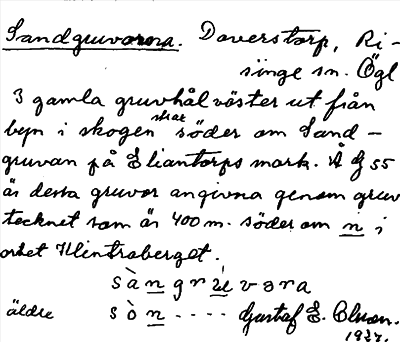 Sandgruvorna. Daverstorp, Ri-
singe sn. Ögl
3 gamla gruvhål väster ut från
byn i skogen strax söder om Sand-
gruvan på Eliantorps mark. Å G 55
äs dessa gruvor angivna genom gruv
tecknet som är 400 m. söder om n i
ordet Klintraberget.
sàngrúvəra
äldre sòn---- Gustaf E.
1937.